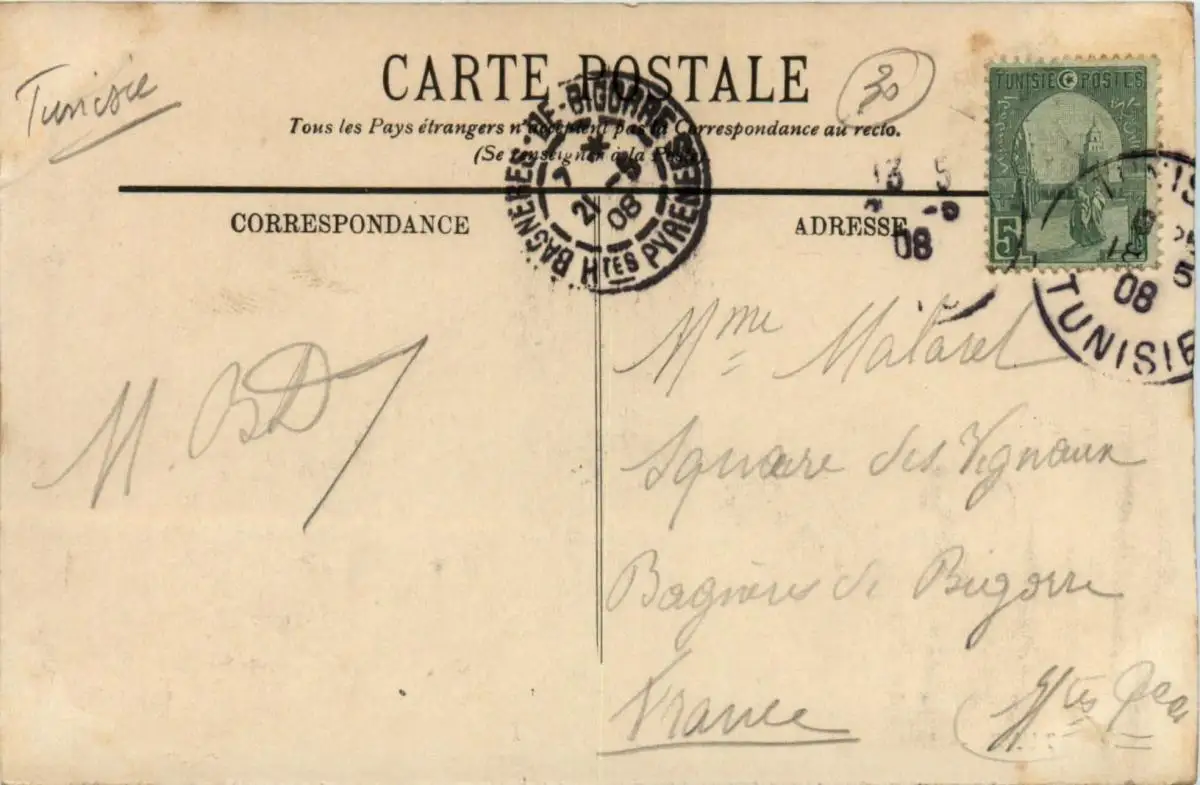 Tunisie
CARTE POSTALE
30
Tous les Pays étrangers n'acceptent pas la Correspondance au recto.
(Se renseigner à la Poste).
TUNISIE POSTES
5
BAGNERES-DE-BIGORRE
7
21 -5
08
HTES PYRENEES
13 5
08
TUNIS
18 5
08
TUNISIE
CORRESPONDANCE
ADRESSE
M. BD
Mme Mataret
Square des Vignaux
Bagnères de Bigorre
France
Htes